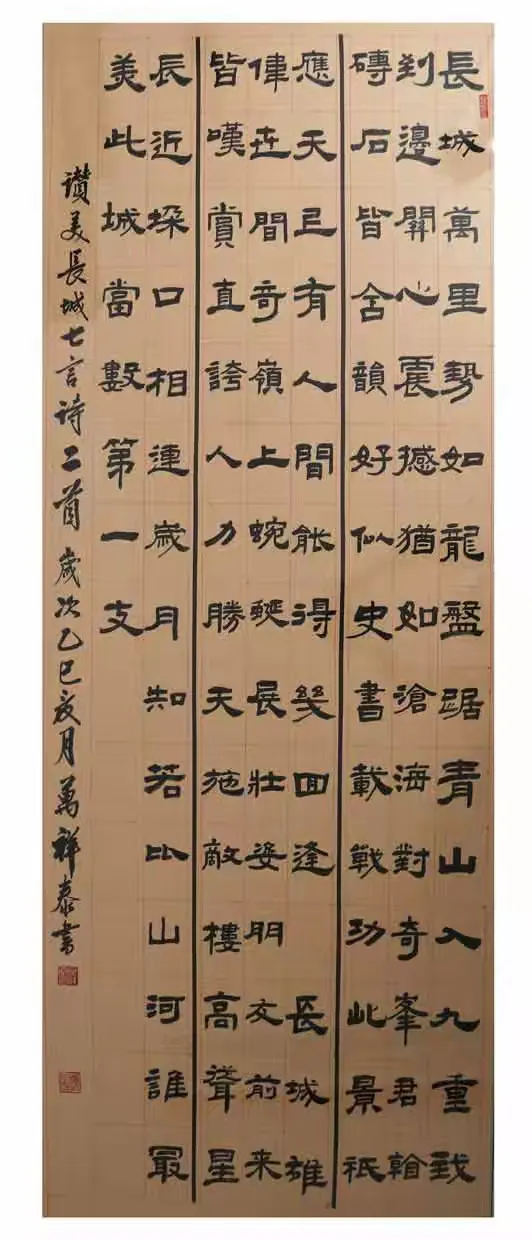 長城萬里勢如龍盤踞青山入九重我
到邊關心震撼猶如滄海對奇峯君看
磚石皆含韻好似史書載戰功此景祇
應天已有人間能得幾回逢 長城雄
偉世間奇嶺上蜿蜒展壯姿朋友前来
皆嘆賞直誇人力勝天施敵樓高聳星
辰近垛口相連歲月知若比山河誰最
美此城當數第一支
讚美長城七言詩二首 歲次乙巳亥月萬祥泰書